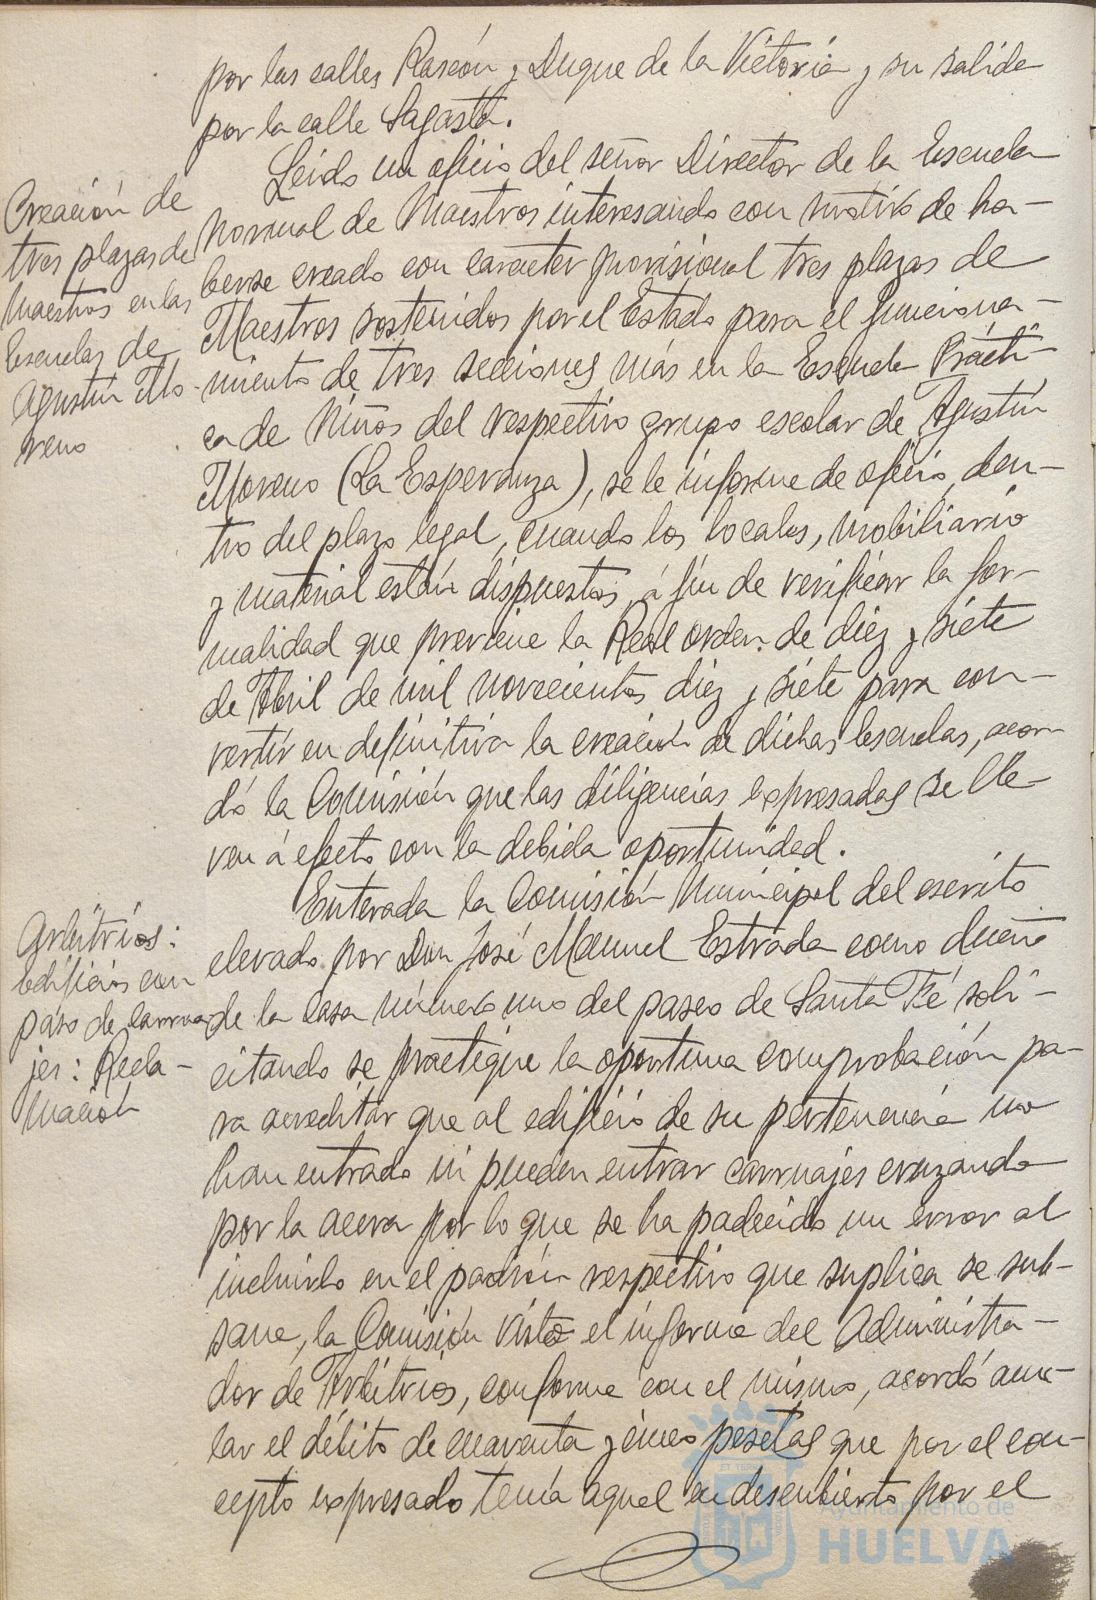 por las calles Rascón y Duque de la Victoria y su salida
por la calle Sagasta.
Creación de
tres plazas de
Maestros en las
Escuelas de
Agustín Mo-
reno
Leido un oficio del señor Director de la Escuela
Normal de Maestros interesando con motivo de ha-
berse creado con caracter provisional tres plazas de
Maestros sostenidos por el Estado para el funciona-
miento de tres secciones más en la Escuela Prácti-
ca de Niños del respectivo grupo escolar de Agustín
Moreno (La Esperanza), se le informe de oficio, den-
tro del plazo legal, cuando los locales, mobiliario
y material están dispuestos, á fin de verificar la for-
malidad que previene la Real orden de diez y siete
de Abril de mil novecientos diez y siete para con-
vertir en definitiva la creación de dichas Escuelas, acor-
dó la Comisión que las diligencias expresadas se lle-
ven á efecto con la debida oportunidad.
Arbitrios:
Edificios con
paso de carrua-
jes: Recla-
mación
Enterada la Comisión Municipal del escrito
elevado por Don José Manuel Estrada como dueño
de la casa número uno del paseo de Santa Fé soli-
citando se practique la oportuna comprobación pa-
ra acreditar que al edificio de su pertenencia no
han entrado ni pueden entrar carruajes cruzando
por la acera por lo que se ha padecido un error al
incluirlo en el padrón respectivo que suplica se sub-
sane, la Comisión visto el informe del Administra-
dor de Arbitrios, conforme con el mismo, acordó anu-
lar el débito de cuarenta y cinco pesetas que por el con-
cepto expresado tenía aquel en descubierto por el
Ayuntamiento de
HUELVA